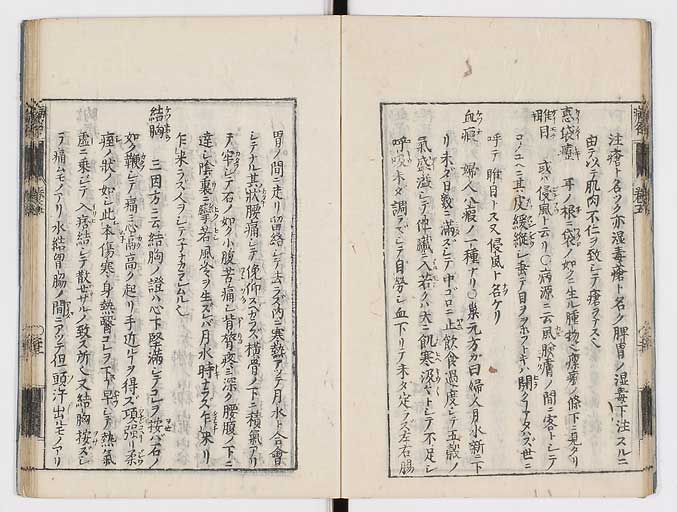 注瘡ト名ツク亦湿毒瘡ト名ク脾胃ノ湿毒下注スルニ
由テ以テ肌肉不仁ヲ致シテ瘡ヲナス
悬袋瘡 耳ノ根ニ袋ノ如クニ生ル腫物ヘ瘰癧ノ條下ニ見タリ
睢目 或ハ侵風ト云リ〇病源ニ云風腠膚ノ間ニ客トシテ
コノユヘニ其皮緩縱シ垂テ目ヲヲホフトキハ開クコアタハズ世ニ
呼テ睢目トス又侵風ト名ケリ
血瘕 婦人八瘕ノ一種ナリ〇巢元方カ曰婦人月水新ニ下
リ未タ日數ニ滿ズシテ中コロニ止飲食過度シテ五穀ノ
氣盛溢シテ他臟ニ入若クハ大ニ飢寒汲々トシテ不足シ
呼吸未タ調ズシテ自勞シ血下リテ未タ定ラズ左右腸
胃ノ間ニ走リ留絡シテ去ラズ内ニ寒熱アツテ月水ト合會
シテナル其狀腰痛シテ俛仰スベカラズ横骨ノ下ニ積氣アリ
テ牢シテ石ノ如ク小腹苦痛シ背膂疼ミ深ク腰腹ノ下ニ
達シ陰裏ニ攣若風冷ヲ生ズレバ月水時ナラズ乍來リ
乍來ラズ人ヲシテ子ナカラムル
結胸 三因方ニ云結胸ノ證ハ心下堅滿シテコレヲ按バ石ノ
如ク鞕シテ痛ミ心高高ク起リ手近ルヲ得ズ項強リ柔
痓ノ狀ノ如シ此本傷寒身熱醫コレヲ下早シテ熱氣
虛ニ乘シテ入痞結シテ散セサルノ致ス所又結胸按ズレ
テ痛ムモノアリ水結胃腸ノ間ニアツテ但頭汗出ルモノアリ